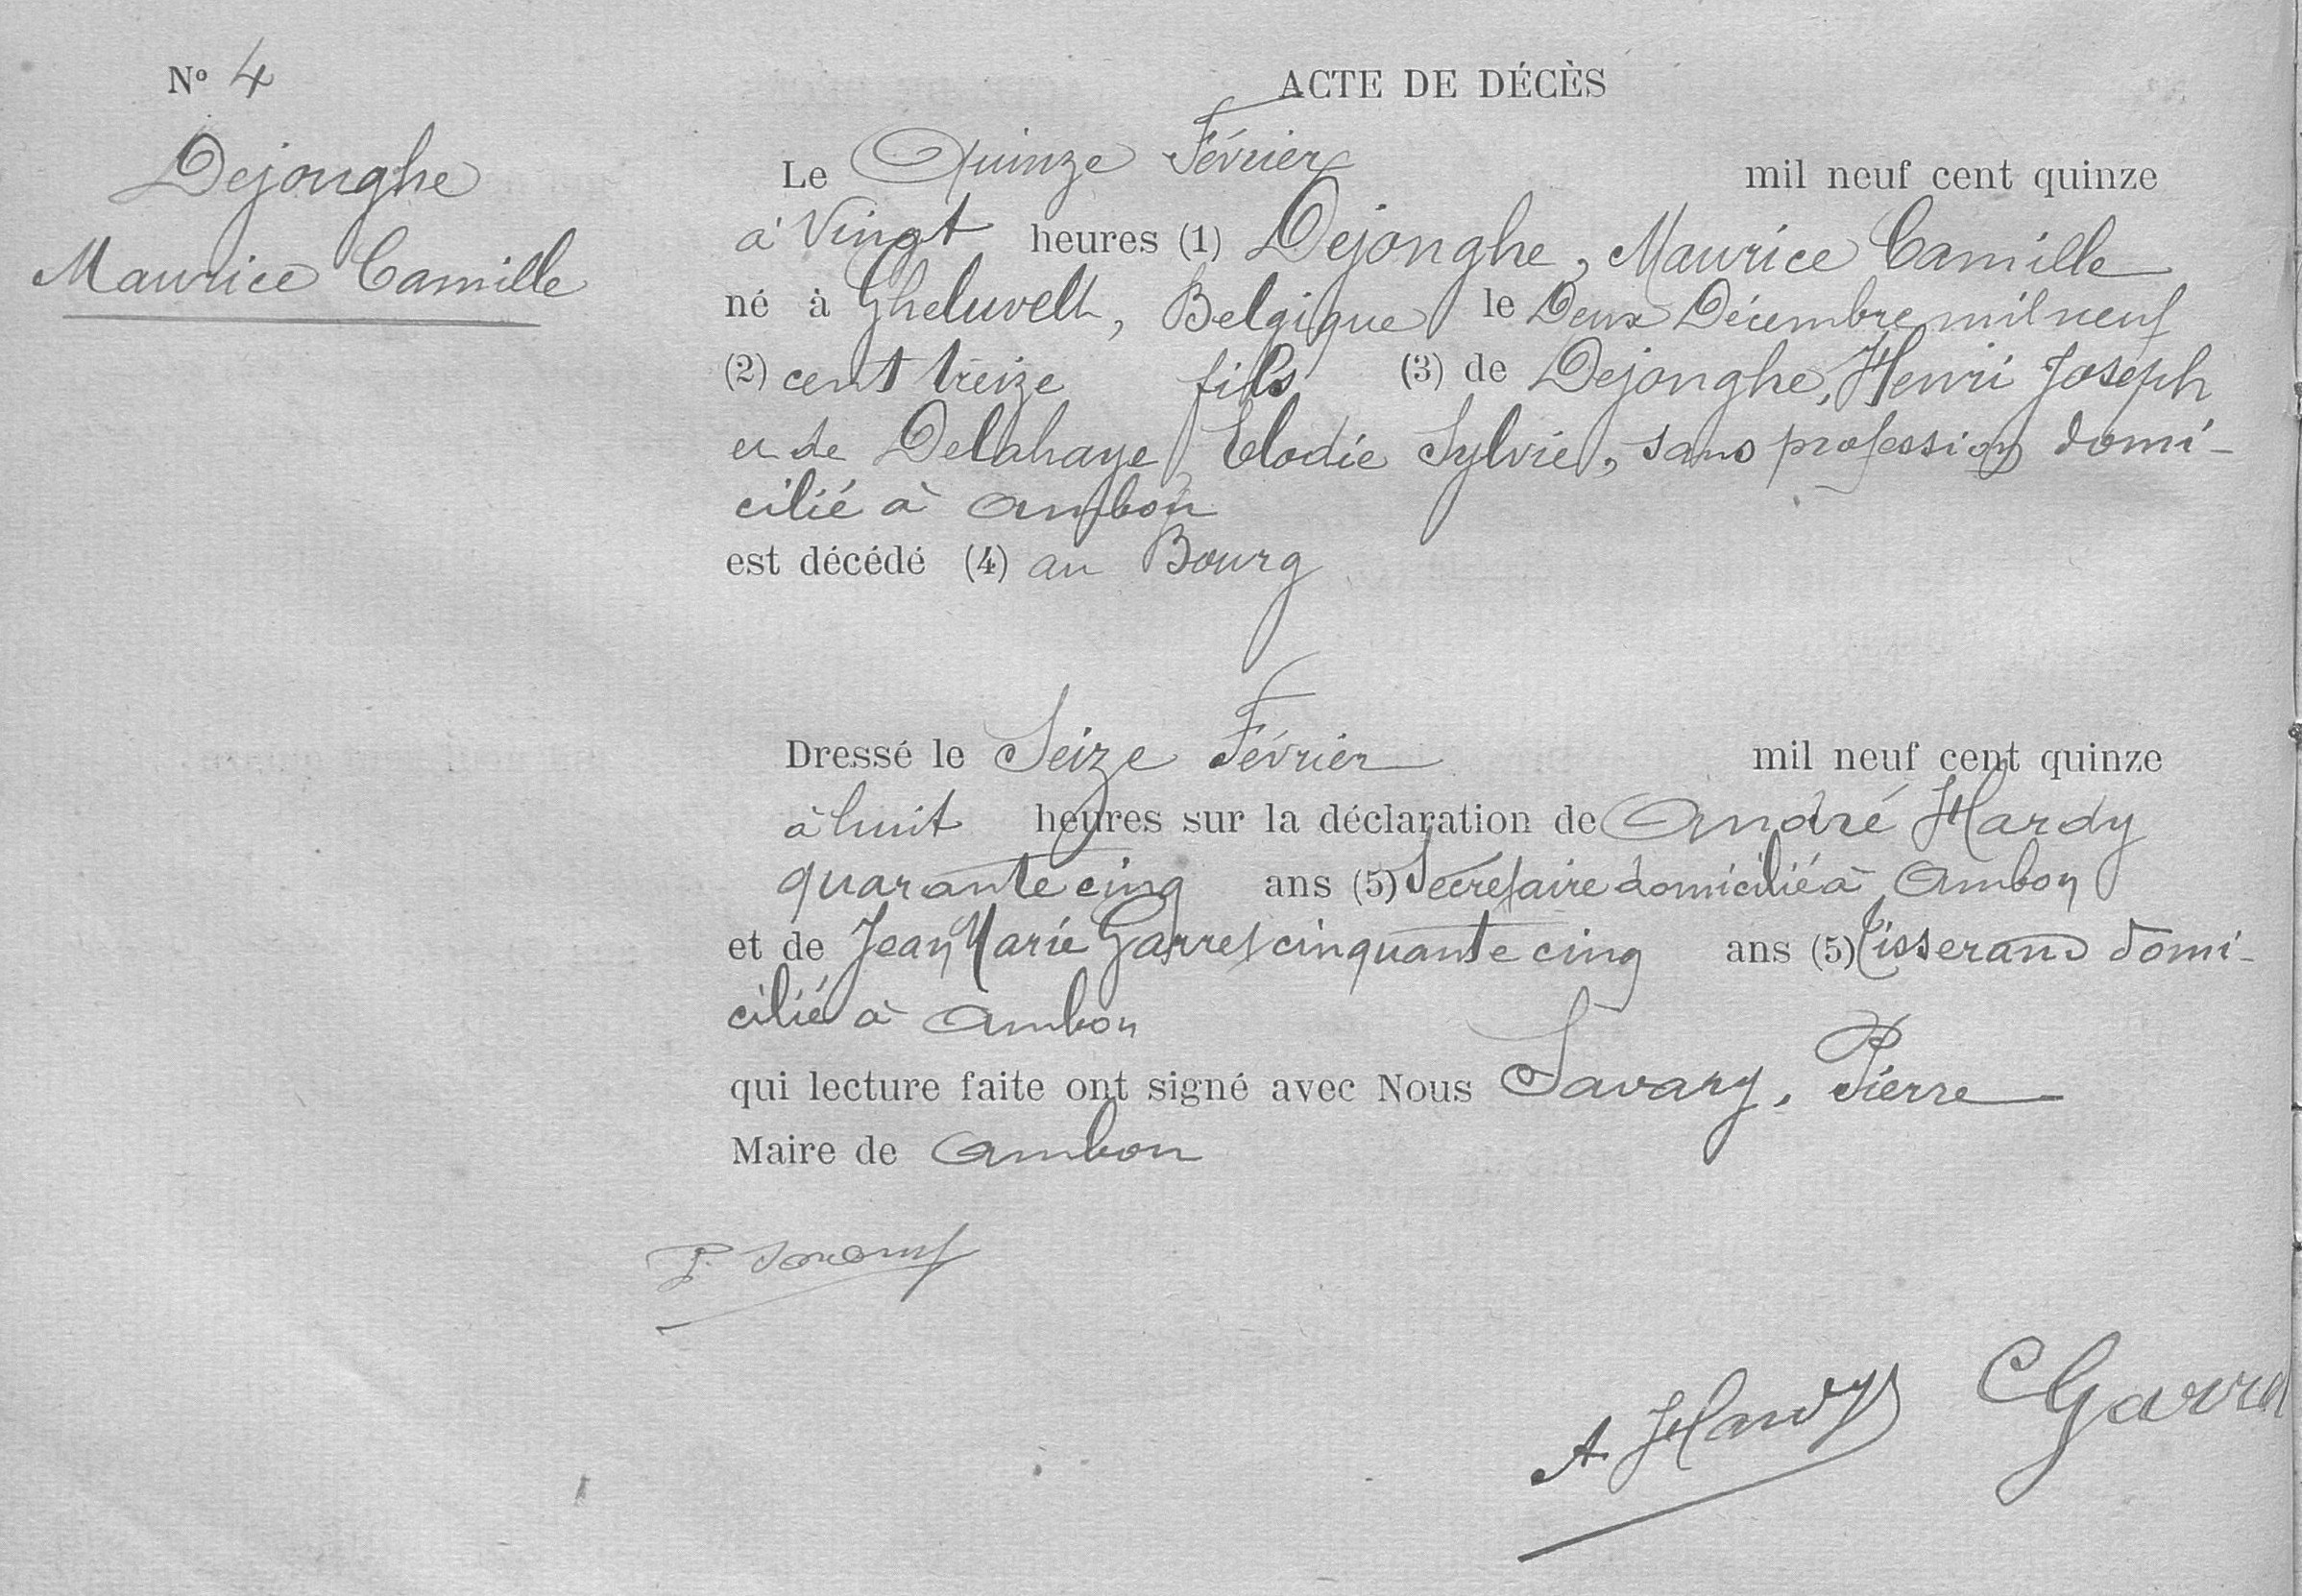 N° 4
Dejonghe
Maurice Camille
ACTE DE DÉCÈS
Le Quinze Février mil neuf cent quinze
à Vingt heures (1) Dejonghe, Maurice Camille
né à Gheluvelt, Belgique le Deux Décembre mil neuf
(2) cent treize fils (3) de Dejonghe, Henri Joseph
et de Delahaye Elodie Sylvie, sans profession domi-
cilié à Ambon
est décédé (4) au Bourg
Dressé le Seize Février mil neuf cent quinze
à huit heures sur la déclaration de André Hardy
quarante cinq ans (5) Secrétaire domicilié à Ambon
et de Jean Marie Garrel cinquante cinq ans (5) Tisserand domi-
cilié à Ambon
qui lecture faite ont signé avec Nous Savary, Pierre
Maire de Ambon
P. Savary
A Hardy Garrel